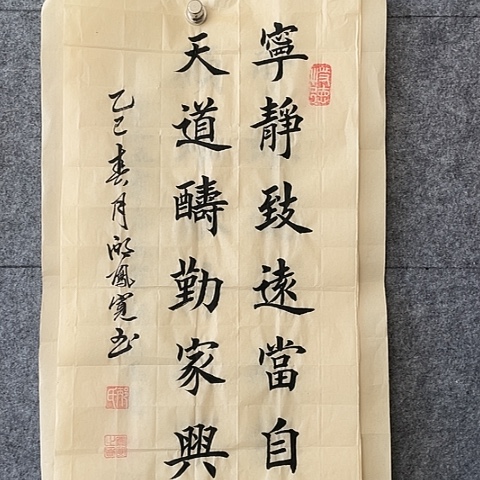 寧靜致遠當自
天道酬勤家興
乙巳春月
鳳寬书